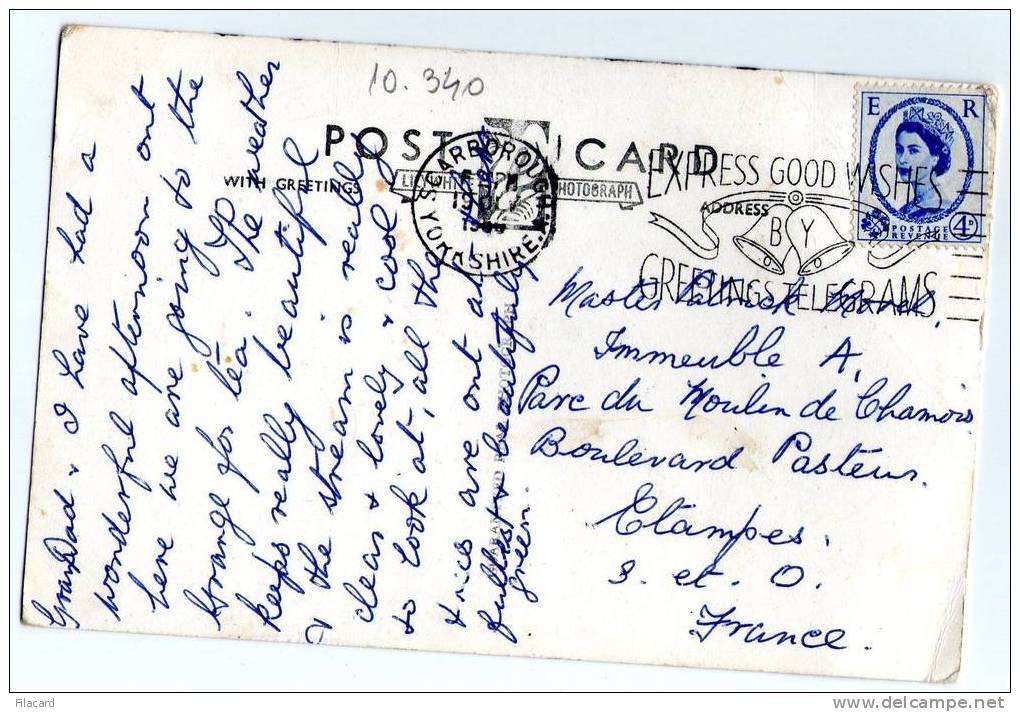 10.340
POST CARD
WITH GREETINGS
PHOTOGRAPH
SCARBOROUGH
19 OCT
YORKSHIRE.
EXPRESS GOOD WISHES
ADDRESS
BY
GREETINGS TELEGRAMS
E R
POSTAGE
REVENUE
4D
GranDad & I have had a
wonderful afternoon out
here we are going to the
Grange for tea. The weather
keeps really beautiful
& the stream is really
clear & lovely & cool
to look at, all the
trees are out at
fullest & beautifully
green.
Master Patrick
Immeuble A,
Parc du Moulin de Chamois
Boulevard Pasteur.
Etampes.
S. et. O.
France.
Filacard
www.delcampe.net